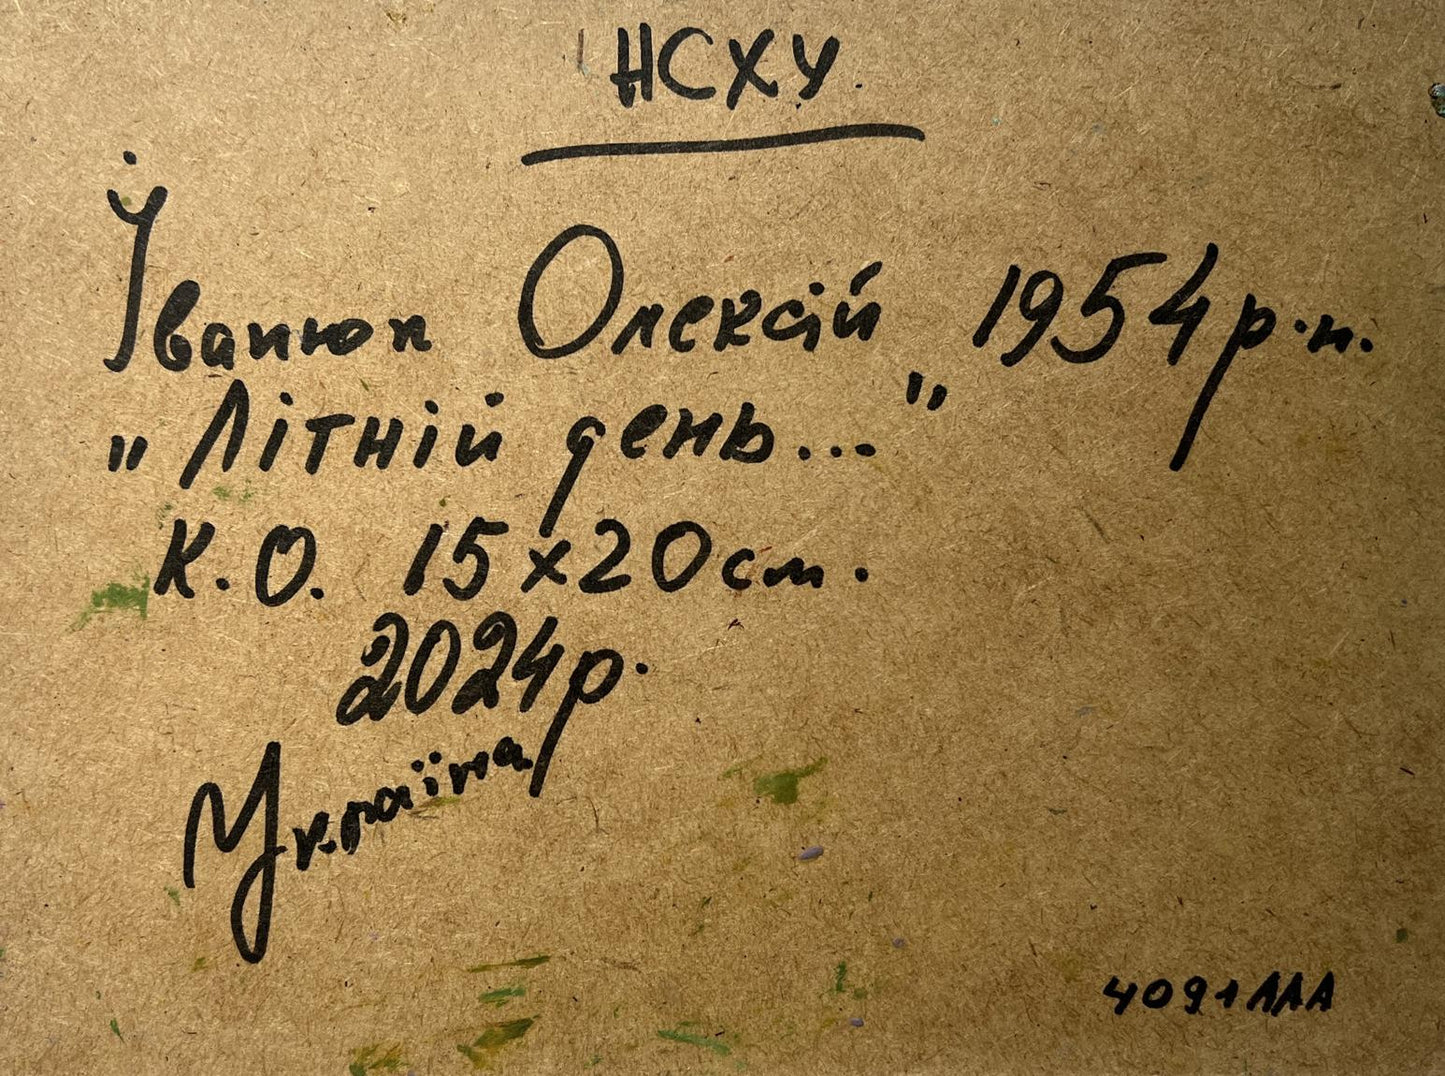 НСХУ.
Іванюк Олексій 1954 р.н.
"Літній день..."
К.О. 15×20 см.
2024 р.
Україна
4091ЛАА